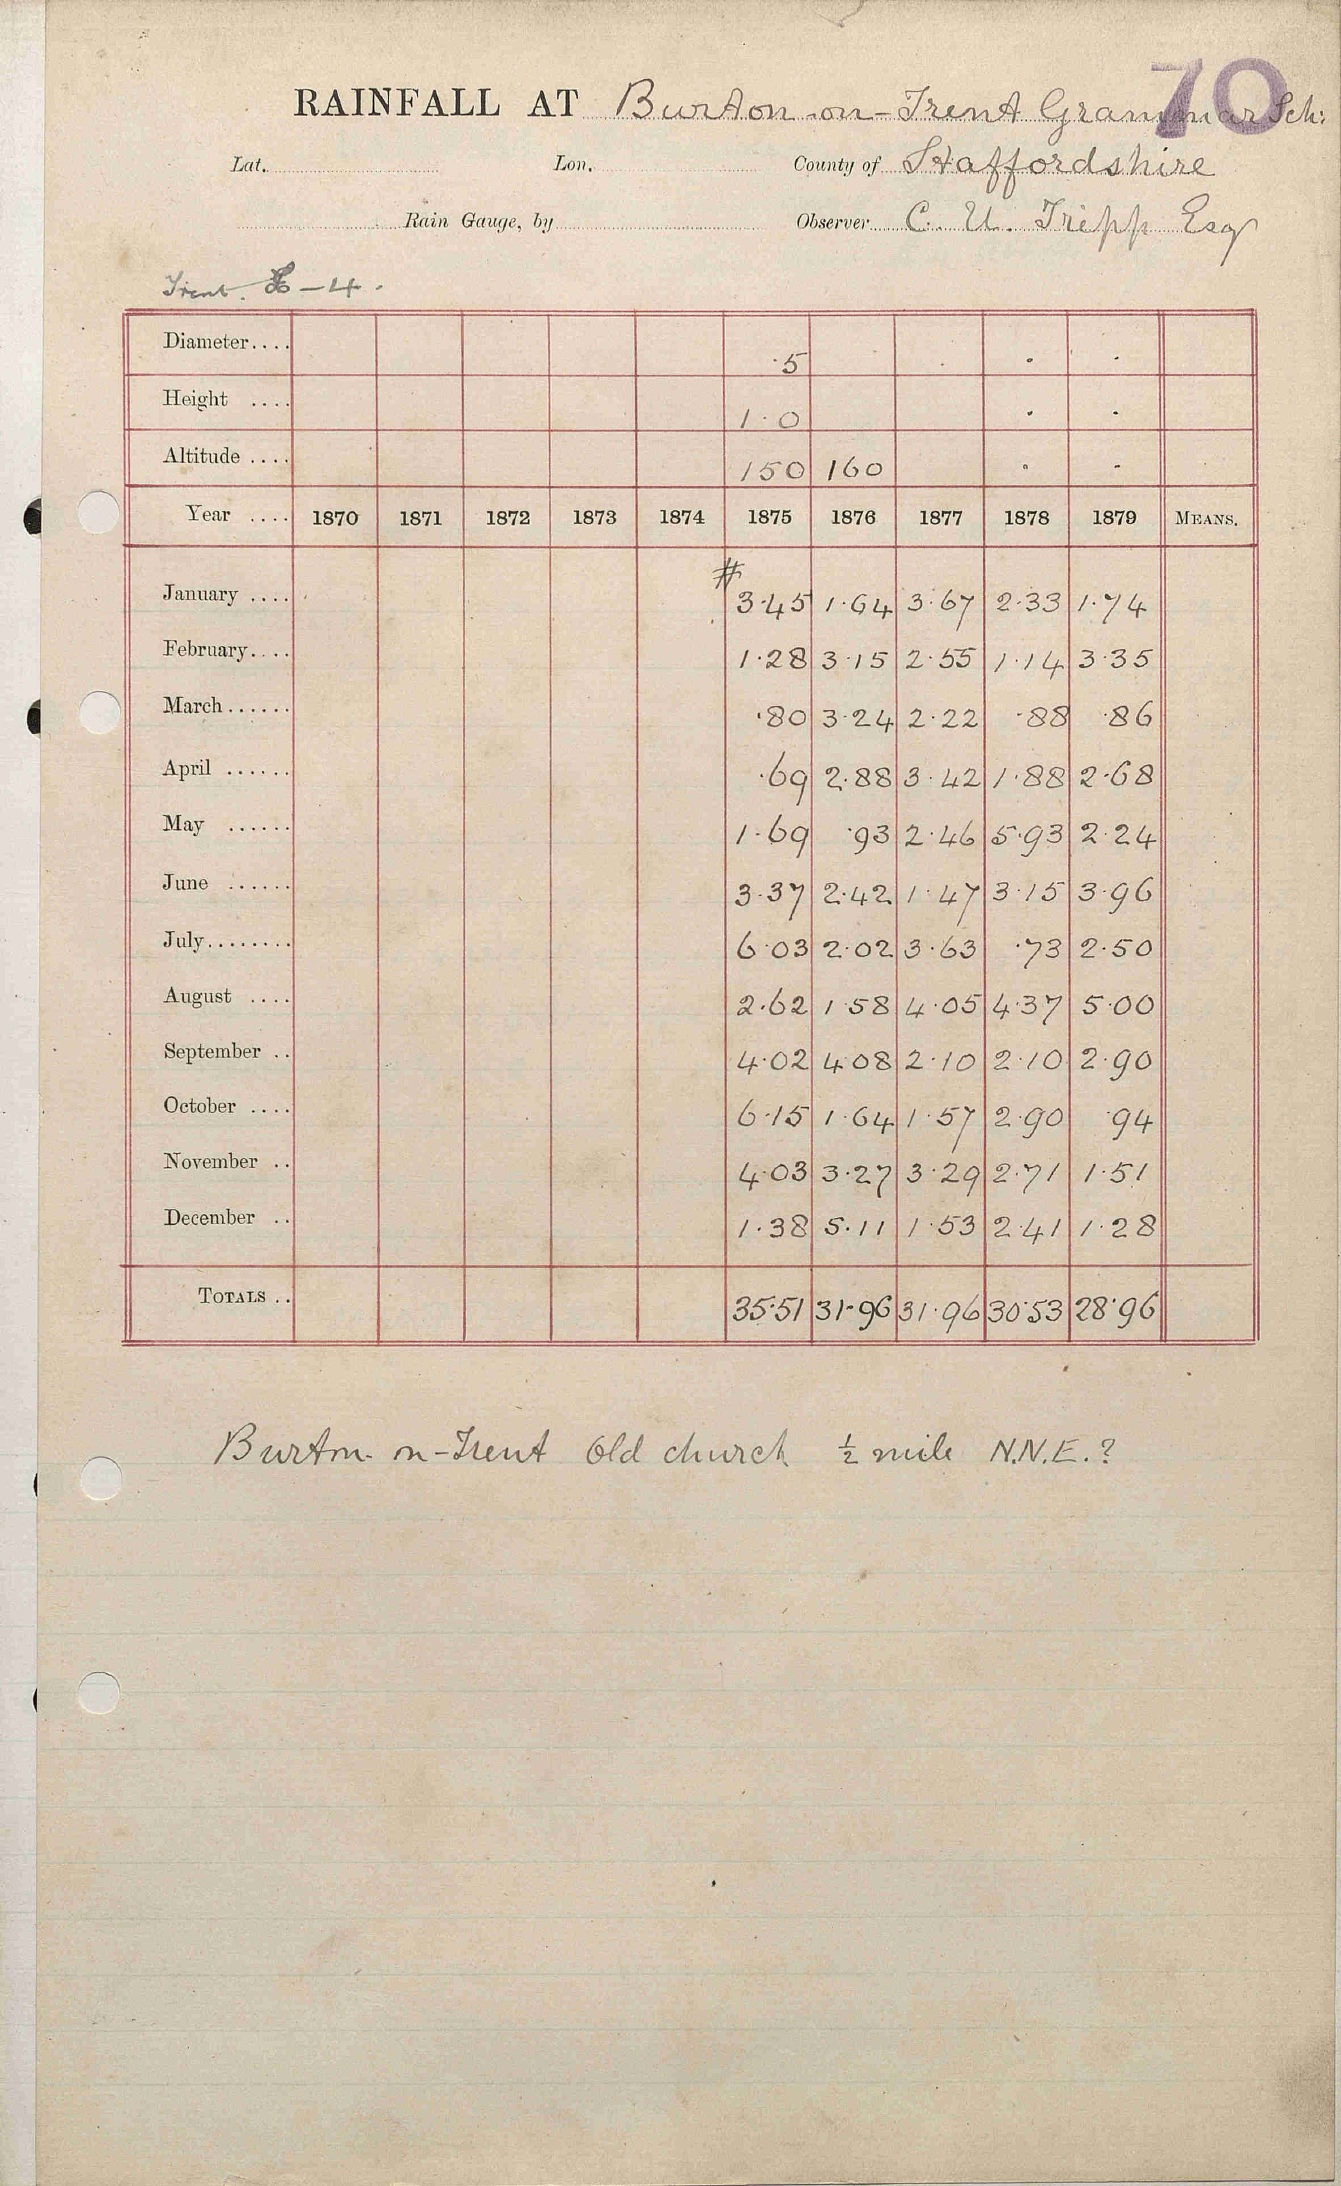 70
RAINFALL AT Burton-on-Trent Grammar Sch:
Lat. Lon. County of Staffordshire
Rain Gauge, by Observer C. U. Tripp Esq
Trent. -4.
Diameter.... ·5 · · ·
Height .... 1·0 · ·
Altitude .... 150 160 · ·
Year .... 1870 1871 1872 1873 1874 1875 1876 1877 1878 1879 MEANS.
#
January .... 3·45 1·64 3·67 2·33 1·74
February.... 1·28 3·15 2·55 1·14 3·35
March...... ·80 3·24 2·22 ·88 ·86
April ...... ·69 2·88 3·42 1·88 2·68
May ...... 1·69 ·93 2·46 5·93 2·24
June ...... 3·37 2·42 1·47 3·15 3·96
July........ 6·03 2·02 3·63 ·73 2·50
August .... 2·62 1·58 4·05 4·37 5·00
September .. 4·02 4·08 2·10 2·10 2·90
October .... 6·15 1·64 1·57 2·90 ·94
November .. 4·03 3·27 3·29 2·71 1·51
December .. 1·38 5·11 1·53 2·41 1·28
TOTALS .. 35·51 31·96 31·96 30·53 28·96
Burton-on-Trent Old church ½ mile N.N.E.?